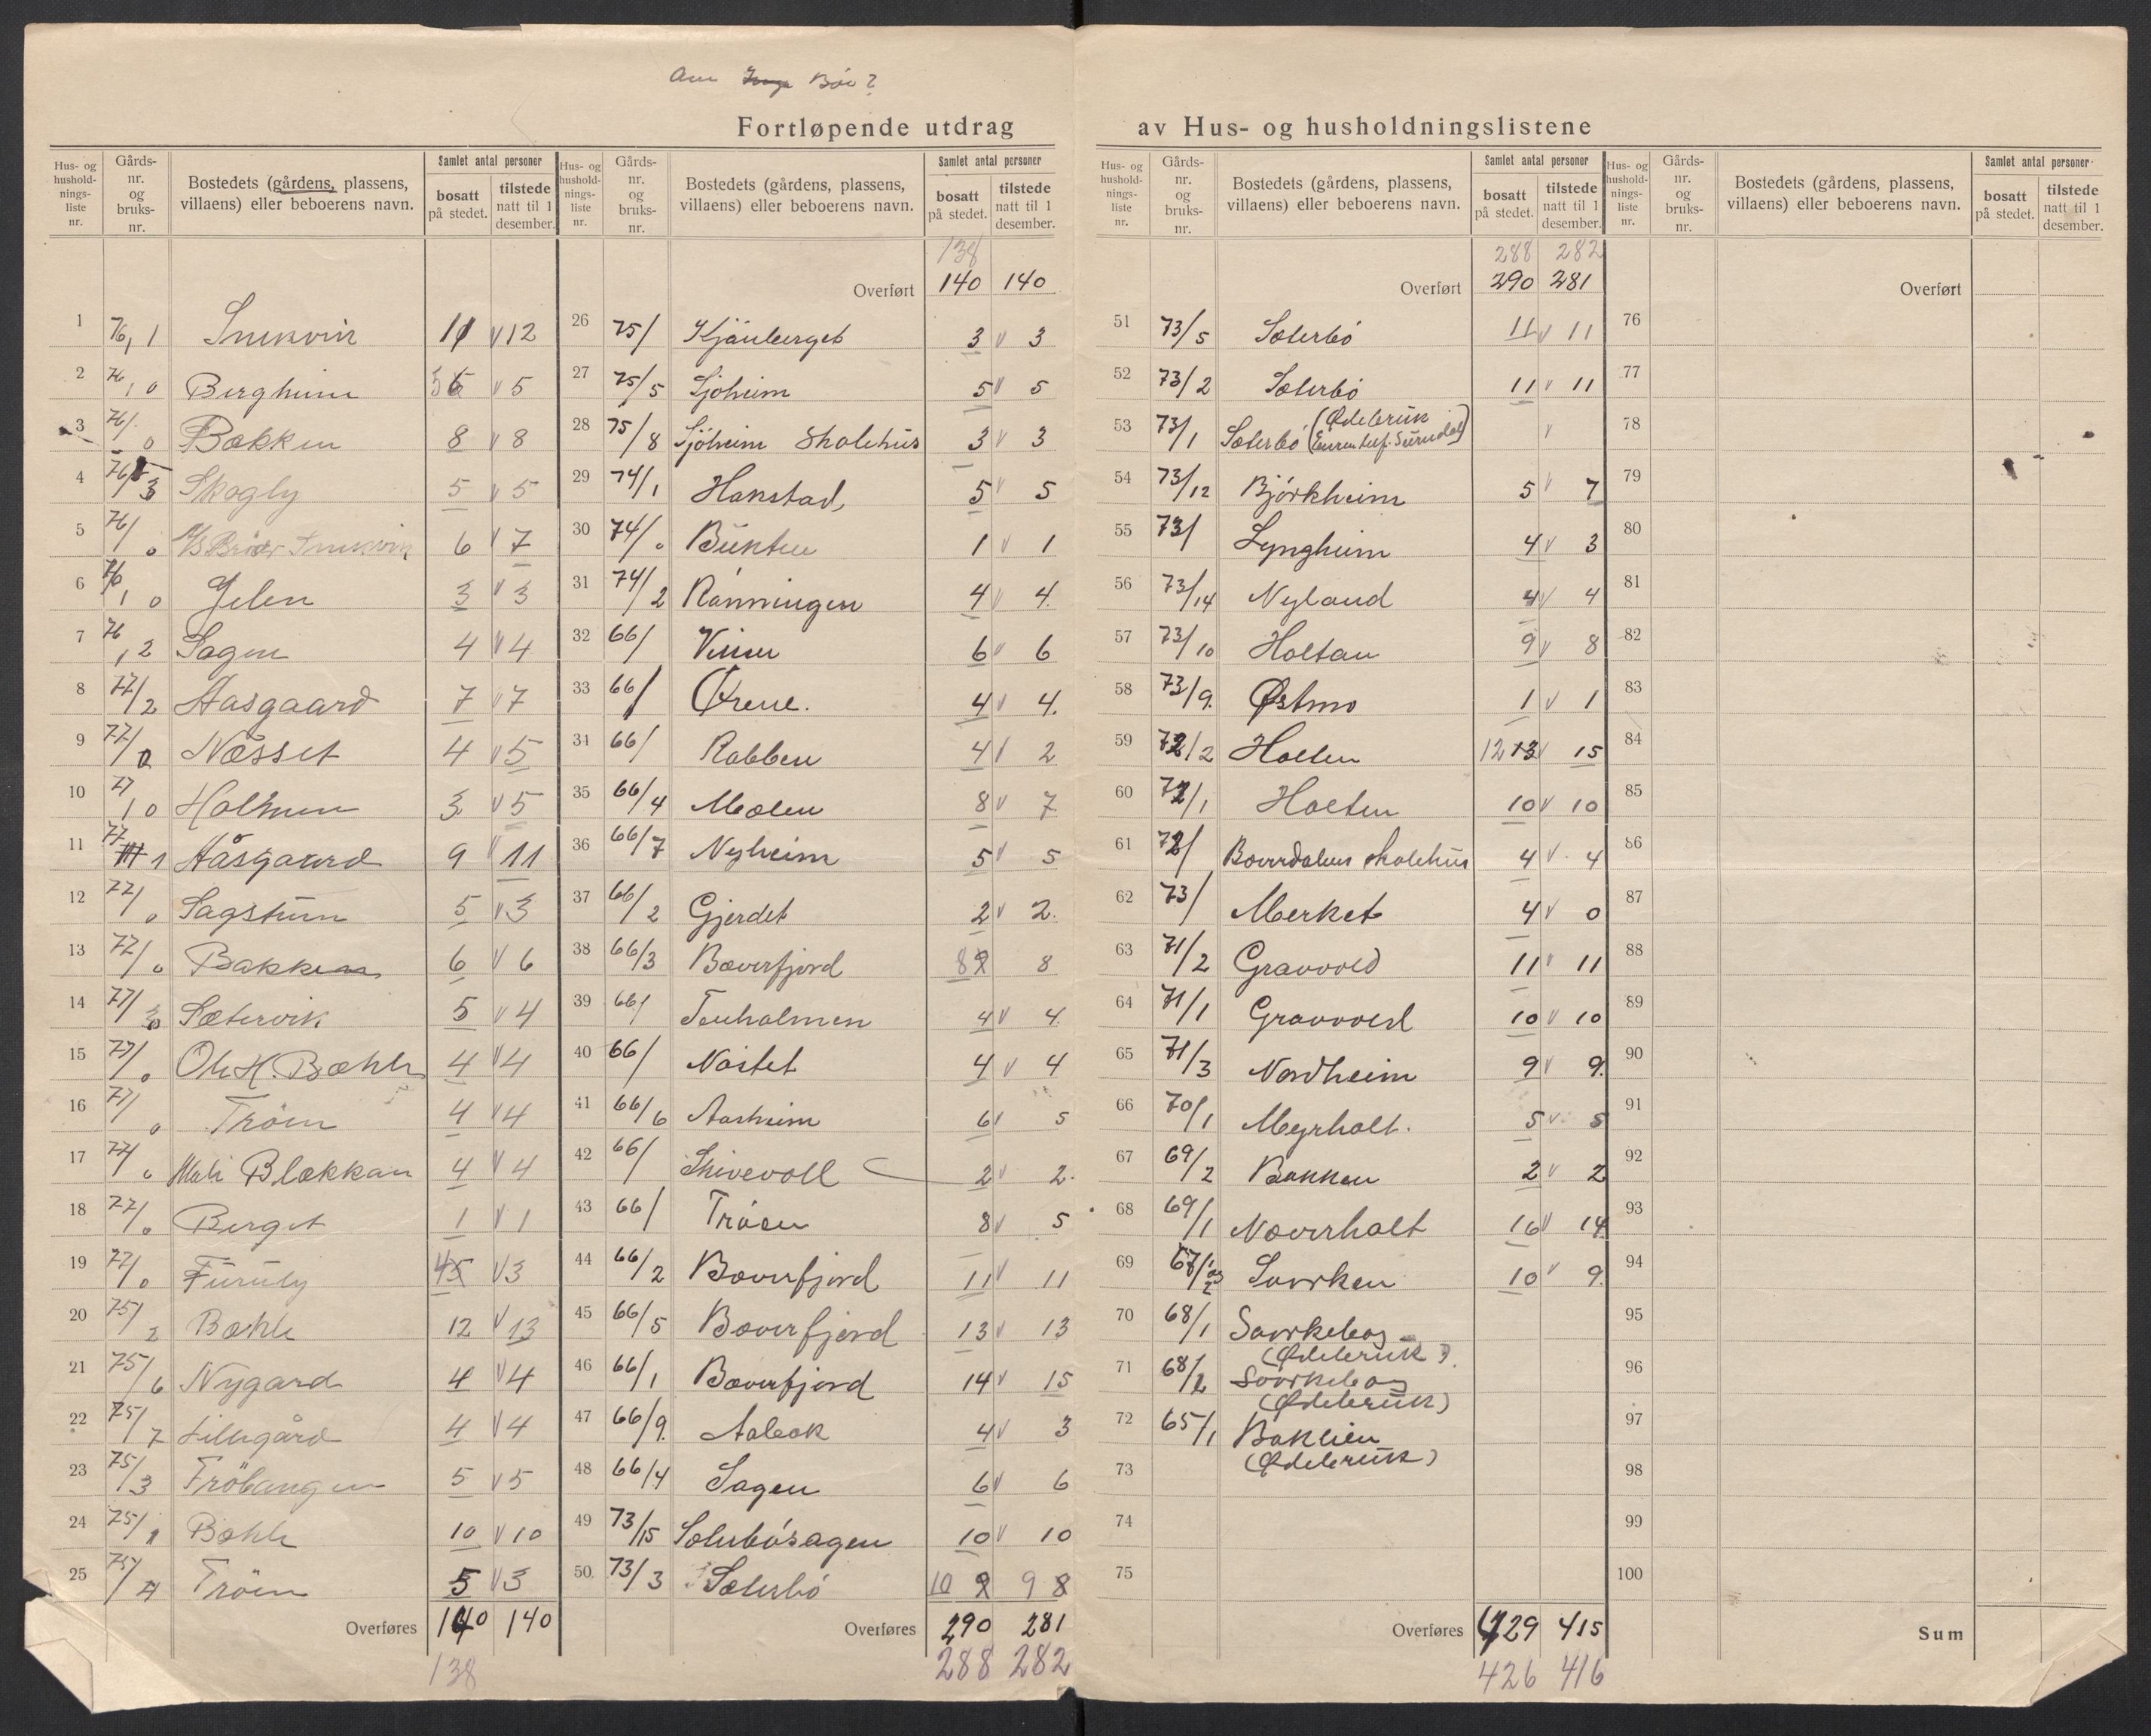 Fortløpende utdrag av Hus- og husholdningslistene
Hus- og husholdnings- liste nr. | Gårds- nr. og bruks- nr. | Bostedets (gårdens, plassens, villaens) eller beboerens navn. | Samlet antal personer bosatt på stedet. | tilstede natt til 1 desember.
1 76,1 Snekvik 11 12
2 76,0 Bergheim 5 6 5
3 76/0 Bækken 8 8
4 76/3 Skogly 5 5
5 76/0 6 7
6 76,0 Jelen 3 3
7 76,2 Sagen 4 4
8 77/2 Aasgaard 7 7
9 77/0 Næsset 4 5
10 77,0 Holmen 3 5
11 77 1 Aasgaard 9 11
12 77/0 Sagstuen 5 3
13 77/0 Bakken 6 6
14 77/ Sætervik 5 4
15 77/0 Ole H. Bæhle 4 4
16 77/0 Trøen 4 4
17 77/0 Blekkan 4 4
18 77/0 Berget 1 1
19 77/0 Furuly 4 5 3
20 75/2 Bæhle 12 13
21 75/6 Nygard 4 4
22 75/7 Lillegård 4 4
23 75/3 Frøbangen 5 5
24 75/1 Bæhle 10 10
25 75/4 Trøen 5 3
Overføres 140 140
138
Hus- og husholdnings- liste nr. | Gårds- nr. og bruks- nr. | Bostedets (gårdens, plassens, villaens) eller beboerens navn. | Samlet antal personer bosatt på stedet. | tilstede natt til 1 desember.
138
Overført 140 140
26 75/ 3 3
27 75/5 Sjøheim 5 5
28 75/8 Sjøheim Skolehus 3 3
29 74/1 Hanstad 5 5
30 74/0 Bunten 1 1
31 74/2 Rønningen 4 4
32 66/ 6 6
33 66/ Ørene. 4 4.
34 66/ Rabben 4 2
35 66/4 Molen 8 7
36 66/7 Nyheim 5 5
37 66/2 Gjerdet 2 2.
38 66/3 Bæverfjord 8 9 8
39 66/ 4 4.
40 66/ Nøstet 4 4
41 66/6 Aasheim 6 5
42 66/ Skivevoll 2 2.
43 66/ Trøen 8 5
44 66/2 Bæverfjord 11 11
45 66/5 Bæverfjord 13 13
46 66/1 Bæverfjord 14 15
47 66/9. 4 3
48 66/4 Sagen 6 6
49 73/15 Sæterbøsagen 10 10
50 73/3 Sæterbø 10 9 9 8
Overføres 290 281
288 282
Hus- og husholdnings- liste nr. | Gårds- nr. og bruks- nr. | Bostedets (gårdens, plassens, villaens) eller beboerens navn. | Samlet antal personer bosatt på stedet. | tilstede natt til 1 desember.
288 282
Overført 290 281
51 73/5 Sæterbø 11 11
52 73/2 Sæterbø 11 11
53 73/1 Sæterbø (Ødebruk
54 73/12 Bjørkheim 5 7
55 73/ Lyngheim 4 3
56 73/14 Nyland 4 4
57 73/10 Holtan 9 8
58 73/9. Østmo 1 1
59 72/2 Holten 12 13 15
60 72/1 Holten 10 10
61 72/ Bæverdalens skolehus 4 4
62 73/ Merket 4 0
63 71/2 Gravvold 11 11
64 71/1 Gravvold 10 10
65 71/3 Nordheim 9 9.
66 70/1 Myrholt. 5 5
67 69/2 Bakken 2 2
68 69/1 Næverholt 16 14
69 67/1 og 2 Svorken 10 9.
70 68/1 Svorkebog
(Ødebruk).
71 68/2 Svorkebog
(Ødebruk)
72 65/1 Baklien
(Ødebruk)
73
74
75
Overføres 429 415
426 416
Hus- og husholdnings- liste nr. | Gårds- nr. og bruks- nr. | Bostedets (gårdens, plassens, villaens) eller beboerens navn. | Samlet antal personer bosatt på stedet. | tilstede natt til 1 desember.
Overført
76
77
78
79
80
81
82
83
84
85
86
87
88
89
90
91
92
93
94
95
96
97
98
99
100
Sum